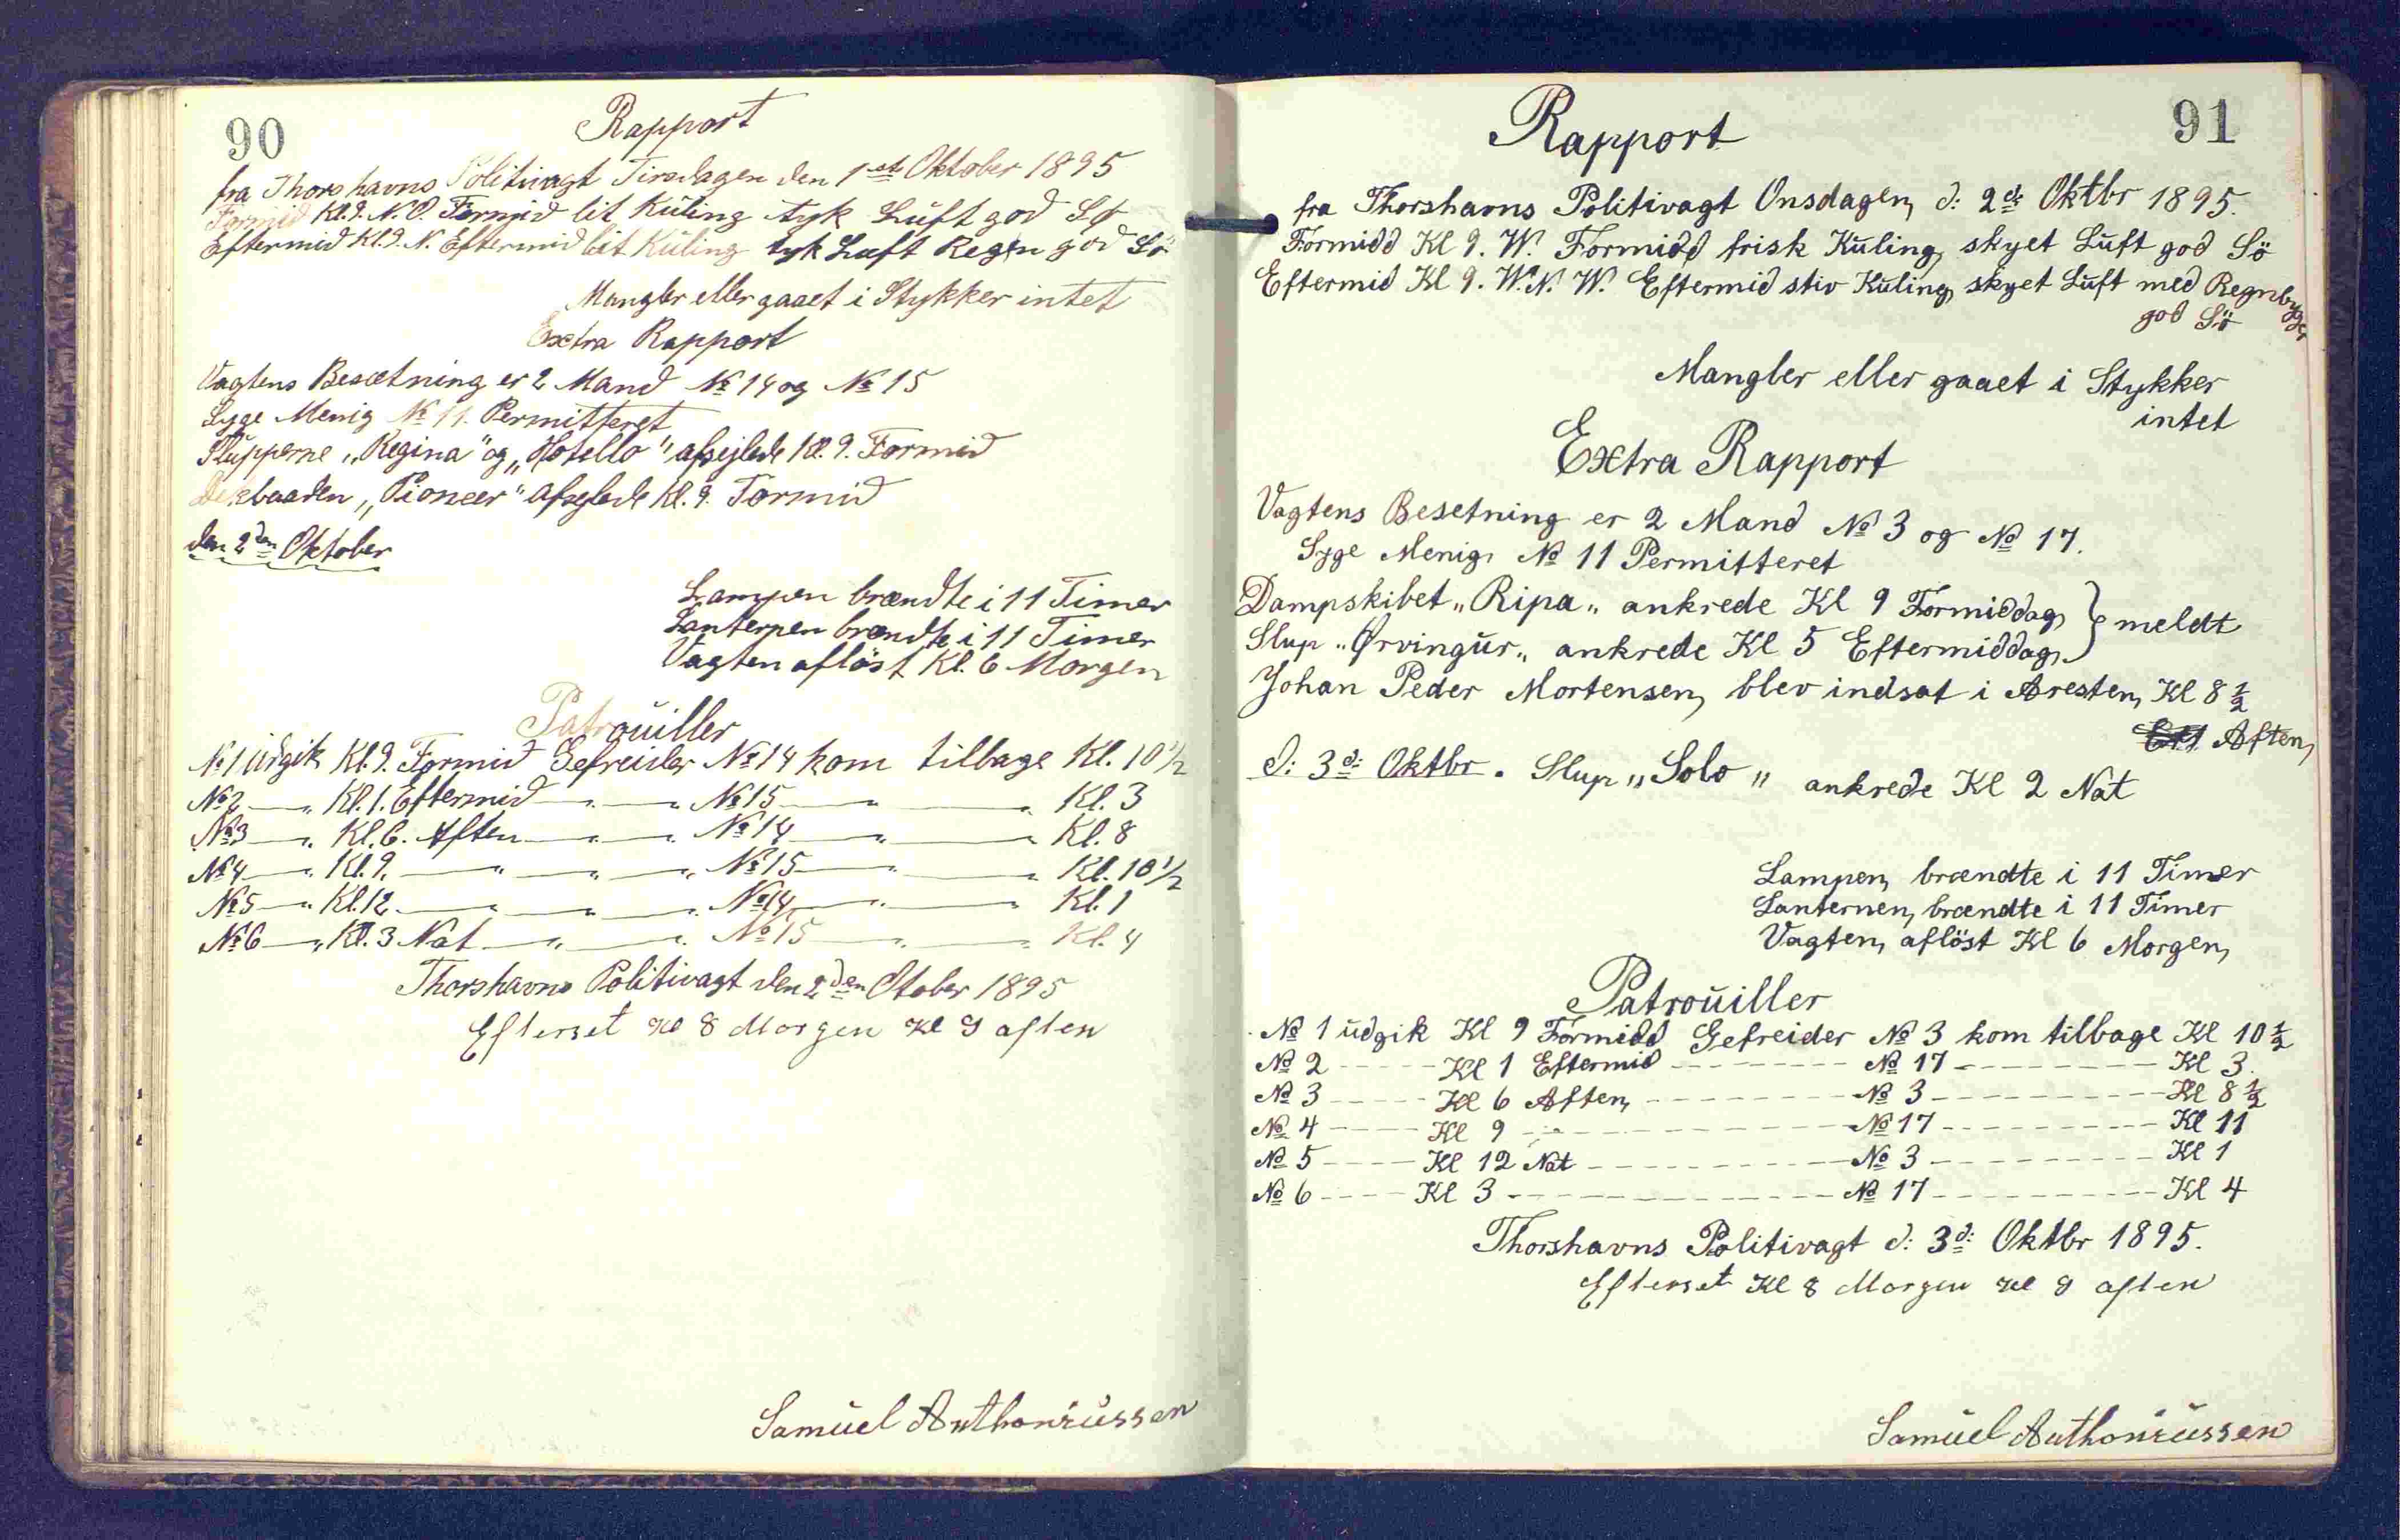 90
Rapport
fra Thorshavns Politivagt Tirsdagen den 1ste Oktober 1895
Formid Kl. 9. N. O. Formid lit Kuling tyk Luft god Sø
Eftermid Kl. 9. N. Eftermid lit Kuling tyk Luft Regn god Sö
Mangler eller gaaet i Stykker intet
Extra Rapport
Vagtens Besætning er 2 Mand № 14 og № 15
Syge Menig № 11. Permitteret
Slupperne „Regina" og „Hotello" afsejlede Kl. 9. Formid
Dekbaaden „Pioneer" afsejlede Kl. 9. Formid
den 2den Oktober
Lampen brændte i 11 Timer
Lanternen brændte i 11 Timer
Vagten aflöst Kl. 6 Morgen
Patrouiller
№ 1 udgik Kl. 9. Formid Gefreider № 14 kom tilbage Kl. 10 1/2
№ 2 —„— Kl. 1. Eftermid —„— № 15 —„— Kl. 3
№ 3 —„— Kl. 6. Aften —„— № 14 —„— Kl. 8
№ 4 —„— Kl. 9. —„— —„— № 15 —„— Kl. 10 1/2
№ 5 —„— Kl. 12 —„— —„— № 14 —„— Kl. 1
№ 6 —„— Kl. 3 Nat —„— № 15 —„— Kl. 4
Thorshavns Politivagt den 2den Otober 1895
Efterset Kl 8 Morgen Kl 9 aften
Samuel Anthoniussen
91
Rapport
fra Thorshavns Politivagt Onsdagen d: 2d: Oktbr 1895.
Formidd Kl 9. W. Formidd frisk Kuling, skyet Luft god Sö
Eftermid Kl 9. W. N. W. Eftermid stiv Kuling, skyet Luft med Regnbyger
god Sö
Mangler eller gaaet i Stykker
intet
Extra Rapport
Vagtens Besetning er 2 Mand № 3 og № 17.
Syge Menig № 11 Permitteret
Dampskibet „Ripa„ ankrede Kl 9 Formiddag } meldt
Slup „Ørvingur„ ankrede Kl 5 Eftermiddag
Johan Peder Mortensen blev indsat i Aresten Kl 8 1/2
Aften
d: 3d: Oktbr. Slup „Solo" ankrede Kl 2 Nat
Lampen brændte i 11 Timer
Lanternen brændte i 11 Timer
Vagten aflöst Kl 6 Morgen
Patrouiller
№ 1 udgik Kl 9 Formidd Gefreider № 3 kom tilbage Kl 10 1/2
№ 2 ----- Kl 1 Eftermid -------- № 17 -------- Kl 3.
№ 3 ----- Kl 6 Aften -------- № 3 -------- Kl 8 1/2
№ 4 ----- Kl 9 -------- № 17 -------- Kl 11
№ 5 ----- Kl 12 Nat -------- № 3 -------- Kl 1
№ 6 ----- Kl 3 -------- № 17 -------- Kl 4
Thorshavns Politivagt d: 3d: Oktbr 1895.
Efterset Kl 8 Morgen Kl 9 aften
Samuel Anthoniussen